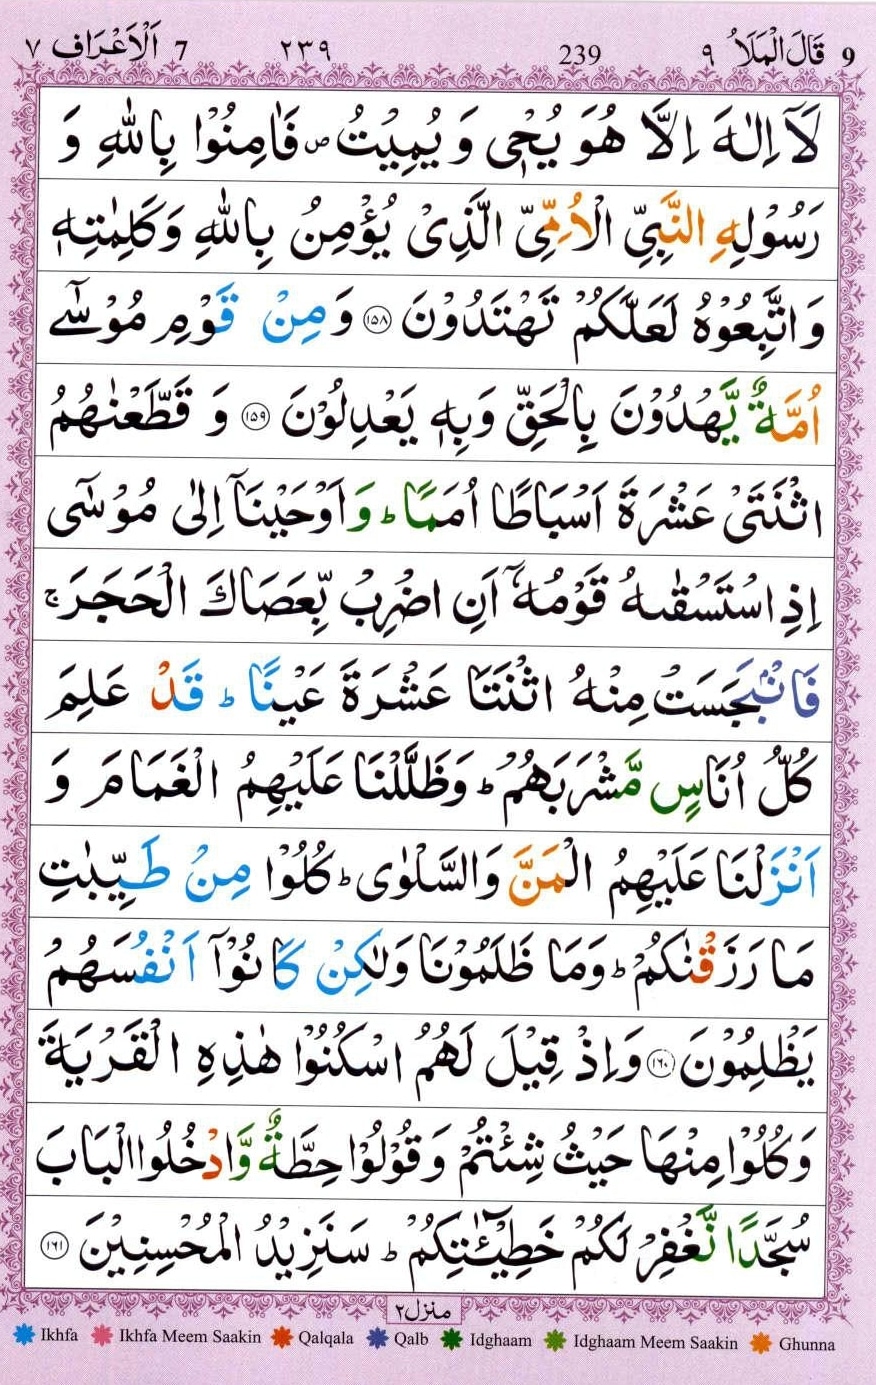 9 قَالَ الْمَلَاُ ٩ 239 ٢٣٩ 7 اَلْاَعْرَاف ٧
لَاۤ اِلٰهَ اِلَّا هُوَ يُحْيٖ وَ يُمِيْتُ ص فَاٰمِنُوْا بِاللّٰهِ وَ
رَسُوْلِهِ النَّبِيِّ الْاُمِّيِّ الَّذِيْ يُؤْمِنُ بِاللّٰهِ وَكَلِمٰتِهٖ
وَاتَّبِعُوْهُ لَعَلَّكُمْ تَهْتَدُوْنَ ١٥٨ وَمِنْ قَوْمِ مُوْسٰۤى
اُمَّةٌ يَّهْدُوْنَ بِالْحَقِّ وَبِهٖ يَعْدِلُوْنَ ١٥٩ وَ قَطَّعْنٰهُمُ
اثْنَتَيْ عَشْرَةَ اَسْبَاطًا اُمَمًا ؕ وَاَوْحَيْنَاۤ اِلٰى مُوْسٰۤى
اِذِ اسْتَسْقٰىهُ قَوْمُهٗۤ اَنِ اضْرِبْ بِّعَصَاكَ الْحَجَرَ ۚ
فَانْۢبَجَسَتْ مِنْهُ اثْنَتَا عَشْرَةَ عَيْنًا ؕ قَدْ عَلِمَ
كُلُّ اُنَاسٍ مَّشْرَبَهُمْ ؕ وَظَلَّلْنَا عَلَيْهِمُ الْغَمَامَ وَ
اَنْزَلْنَا عَلَيْهِمُ الْمَنَّ وَالسَّلْوٰى ؕ كُلُوْا مِنْ طَيِّبٰتِ
مَا رَزَقْنٰكُمْ ؕ وَمَا ظَلَمُوْنَا وَلٰكِنْ كَانُوْۤا اَنْفُسَهُمْ
يَظْلِمُوْنَ ١٦٠ وَاِذْ قِيْلَ لَهُمُ اسْكُنُوْا هٰذِهِ الْقَرْيَةَ
وَكُلُوْا مِنْهَا حَيْثُ شِئْتُمْ وَقُوْلُوْا حِطَّةٌ وَّادْخُلُوا الْبَابَ
سُجَّدًا نَّغْفِرْ لَكُمْ خَطِيْٓـٰٔتِكُمْ ؕ سَنَزِيْدُ الْمُحْسِنِيْنَ ١٦١
منزل ٢
Ikhfa Ikhfa Meem Saakin Qalqala Qalb Idghaam Idghaam Meem Saakin Ghunna